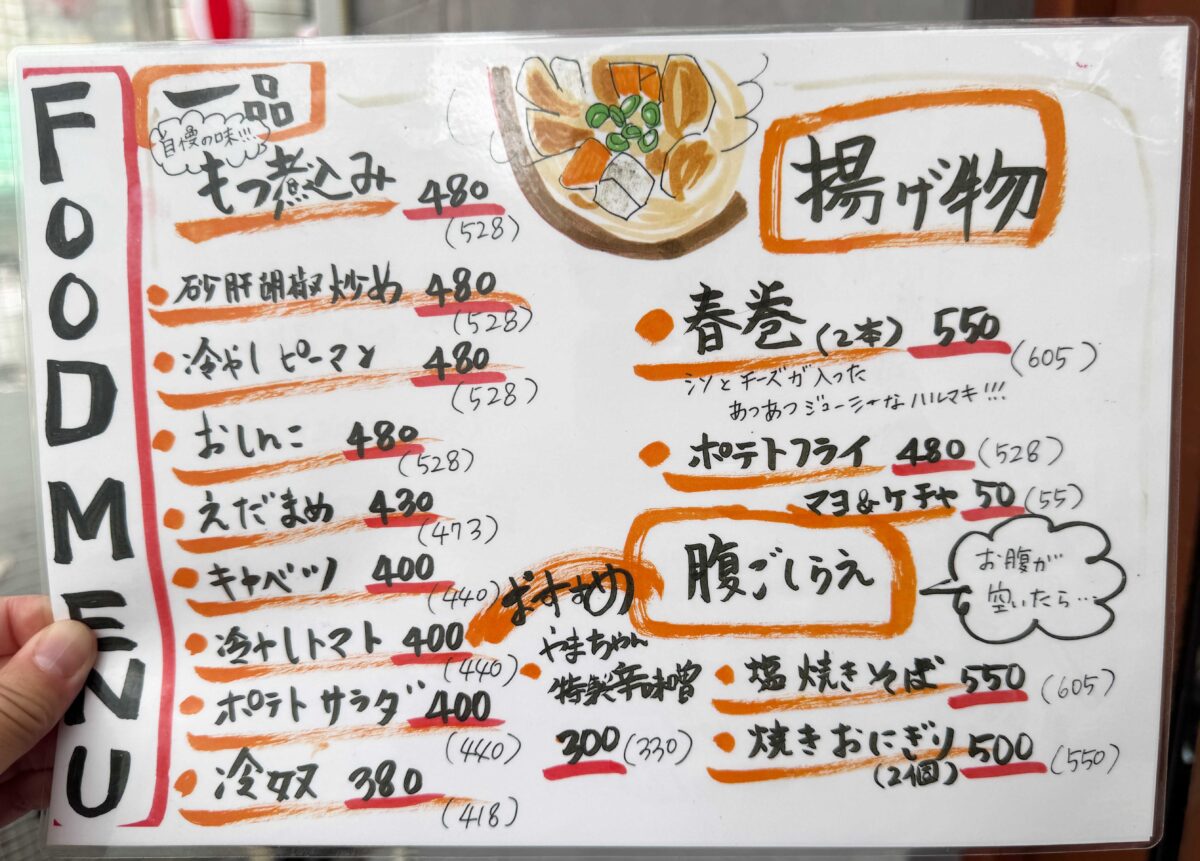 FOOD MENU
一品
自慢の味!!!
もつ煮込み 480
(528)
砂肝胡椒炒め 480
(528)
冷やしピーマン 480
(528)
おしんこ 480
(528)
えだまめ 430
(473)
キャベツ 400
(440)
冷やしトマト 400
(440)
ポテトサラダ 400
(440)
冷奴 380
(418)
揚げ物
春巻 (2本) 550
(605)
シソとチーズが入った
あつあつジューシーなハルマキ!!!
ポテトフライ 480 (528)
マヨ&ケチャ 50 (55)
おすすめ
やまちゃん
特製辛味噌
300 (330)
腹ごしらえ
お腹が
空いたら…
塩焼きそば 550 (605)
焼きおにぎり 500 (550)
(2個)